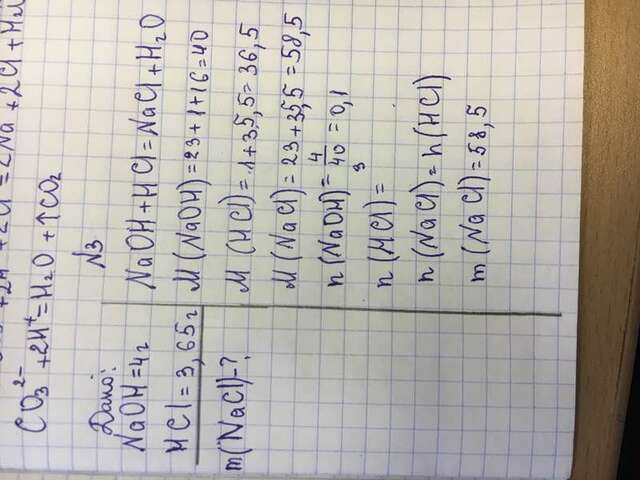 +2H +2Cl = 2Na + 2Cl + H₂
CO₃²⁻ + 2H⁺ = H₂O + ↑CO₂
N3
Дано:
NaOH = 4г
HCl = 3,65г
m(NaCl) - ?
NaOH + HCl = NaCl + H₂O
M(NaOH) = 23+1+16 = 40
M(HCl) = 1+35,5 = 36,5
M(NaCl) = 23+35,5 = 58,5
n(NaOH) = 4/40 = 0,1
3
n(HCl) =
n(NaCl) = n(HCl)
m(NaCl) = 58,5